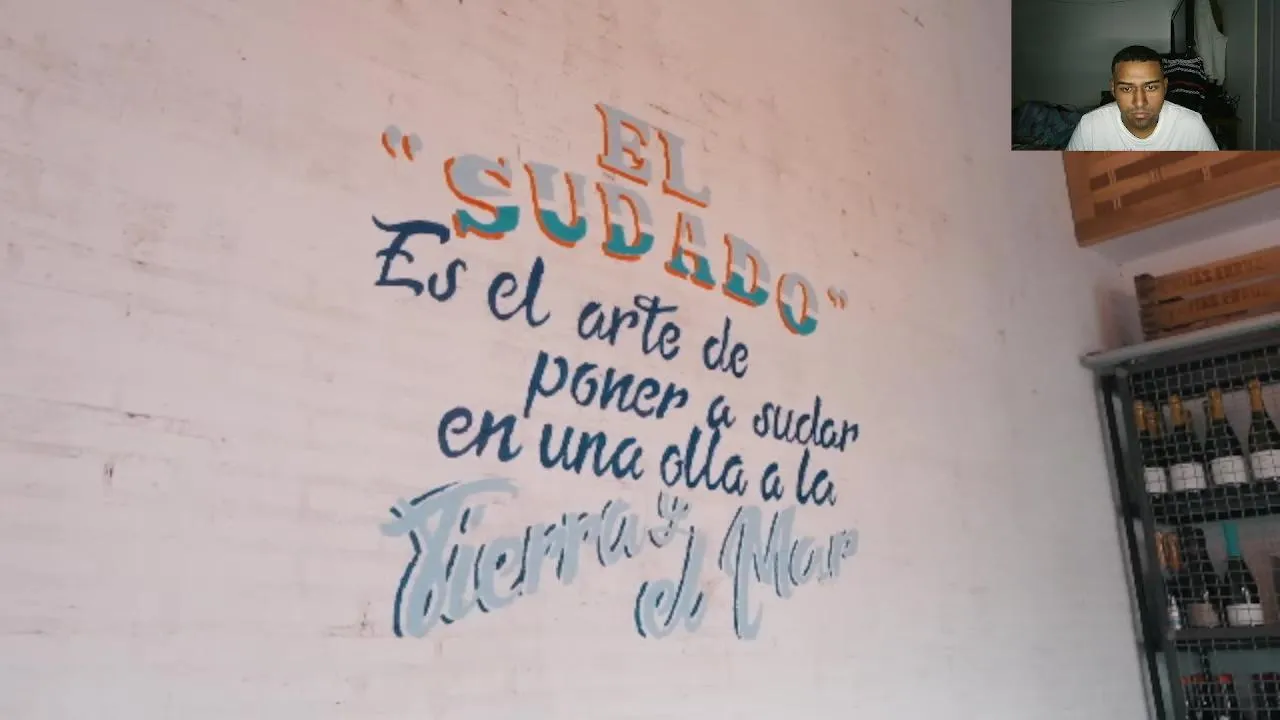 EL
"SUDADO"
Es el arte de
poner a sudar
en una olla a la
Tierra y
el Mar